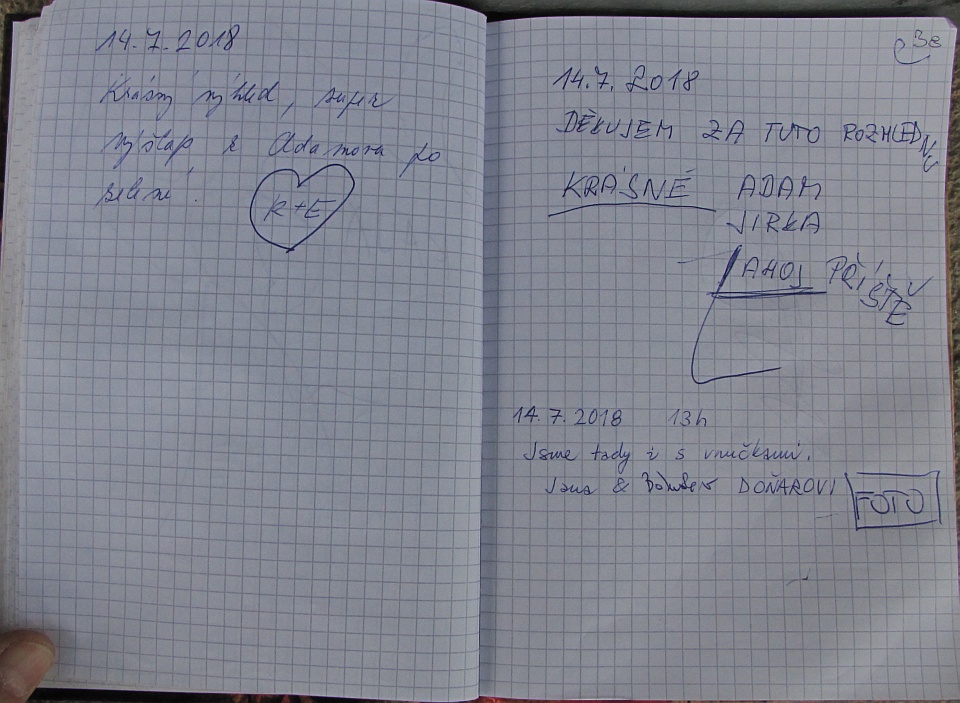 14.7.2018
Krásný výhled, super
výšlap z Adamova po
zelené.
K+E
38
14.7.2018
DĚKUJEM ZA TUTO ROZHLEDNU
KRÁSNÉ ADAM
JIRKA
AHOJ PŘÍŠTĚ
14.7.2018 13h
Jsme tady i s vnučkami.
Jana & DOŇAROVI
FOTO